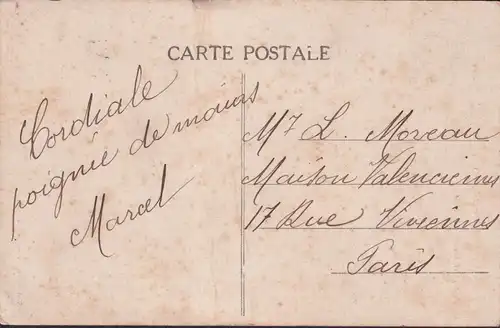 CARTE POSTALE
Cordiale
poignée de mains
Marcel
Mr L. Moreau
Maison Valenciennes
17 Rue Vivienne
Paris